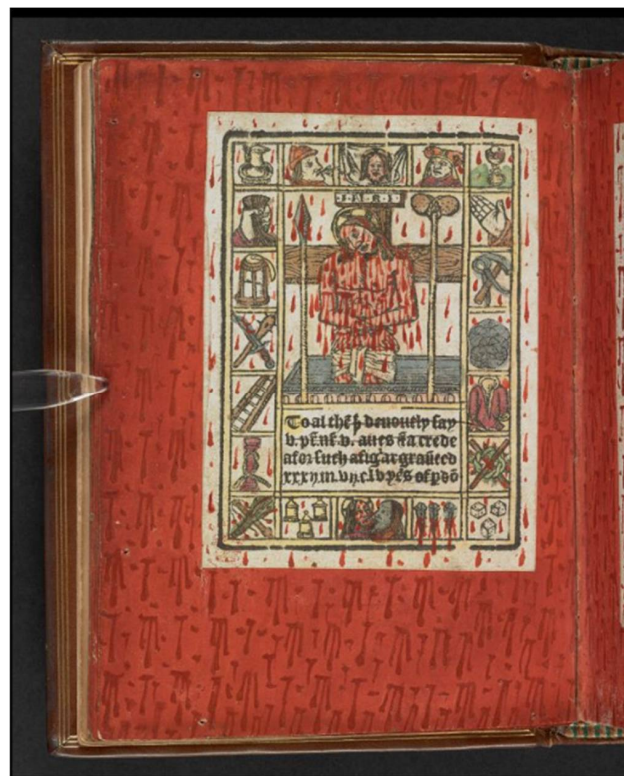 I·N·R·I
To al thẽ þᵗ deuoutly say
v. pr̃.nr̃.v. aues & a crede
afor such a figʳ ar grãuted
xxxij.m.vij.c.lv yẽs of pdõ